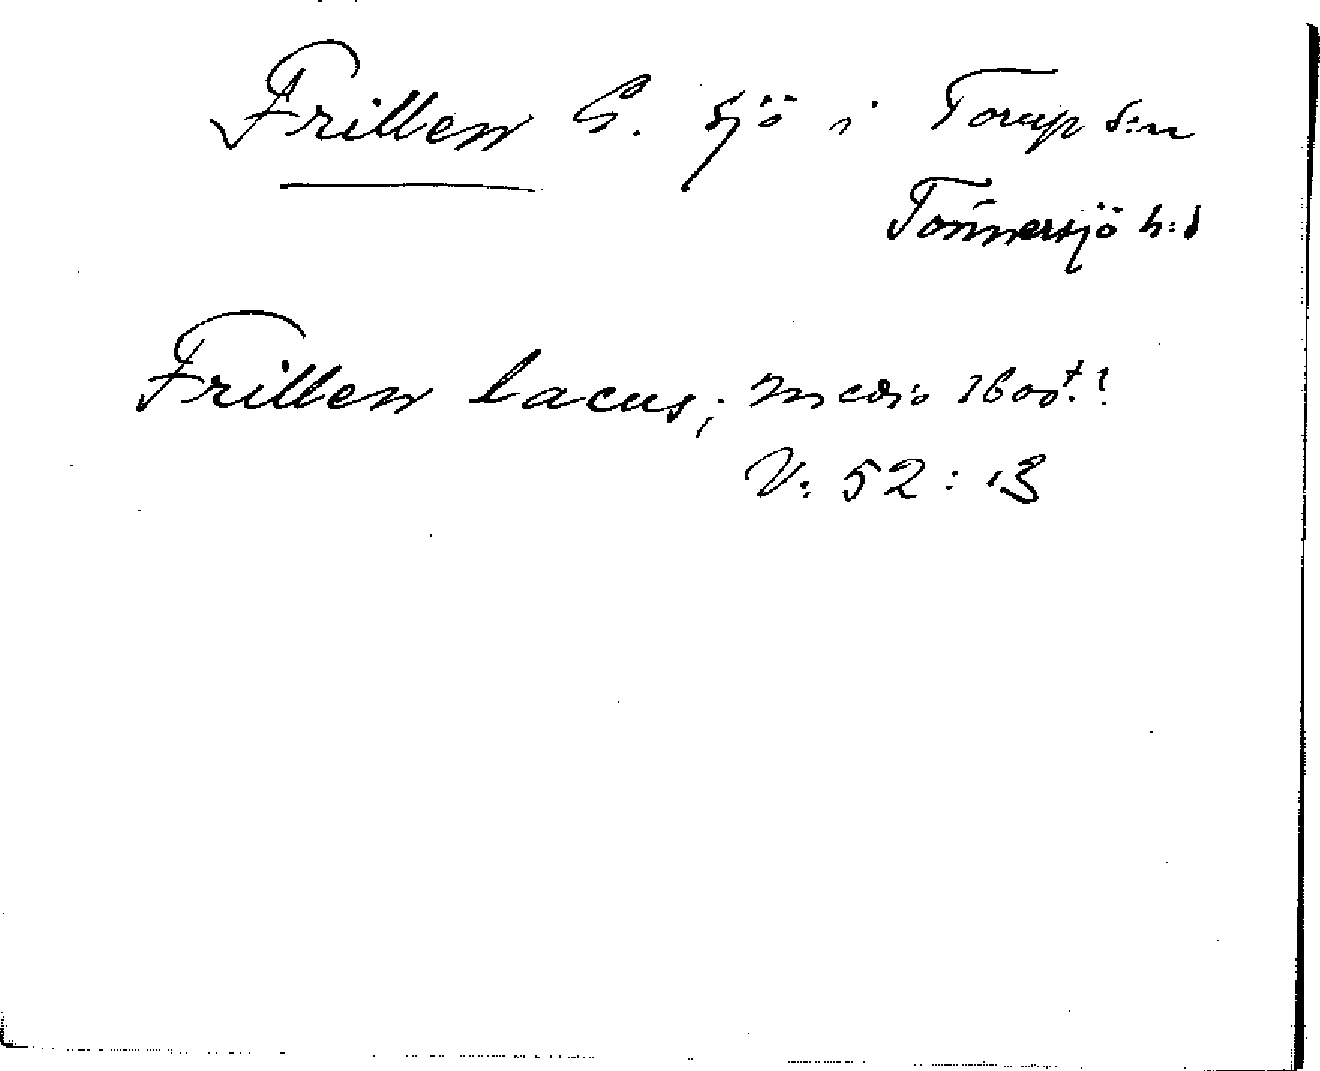 Frillen G. sjö i Torup s:n
Tönnersjö h:d
Frillen lacus; medio 1600t.!
V: 52:13